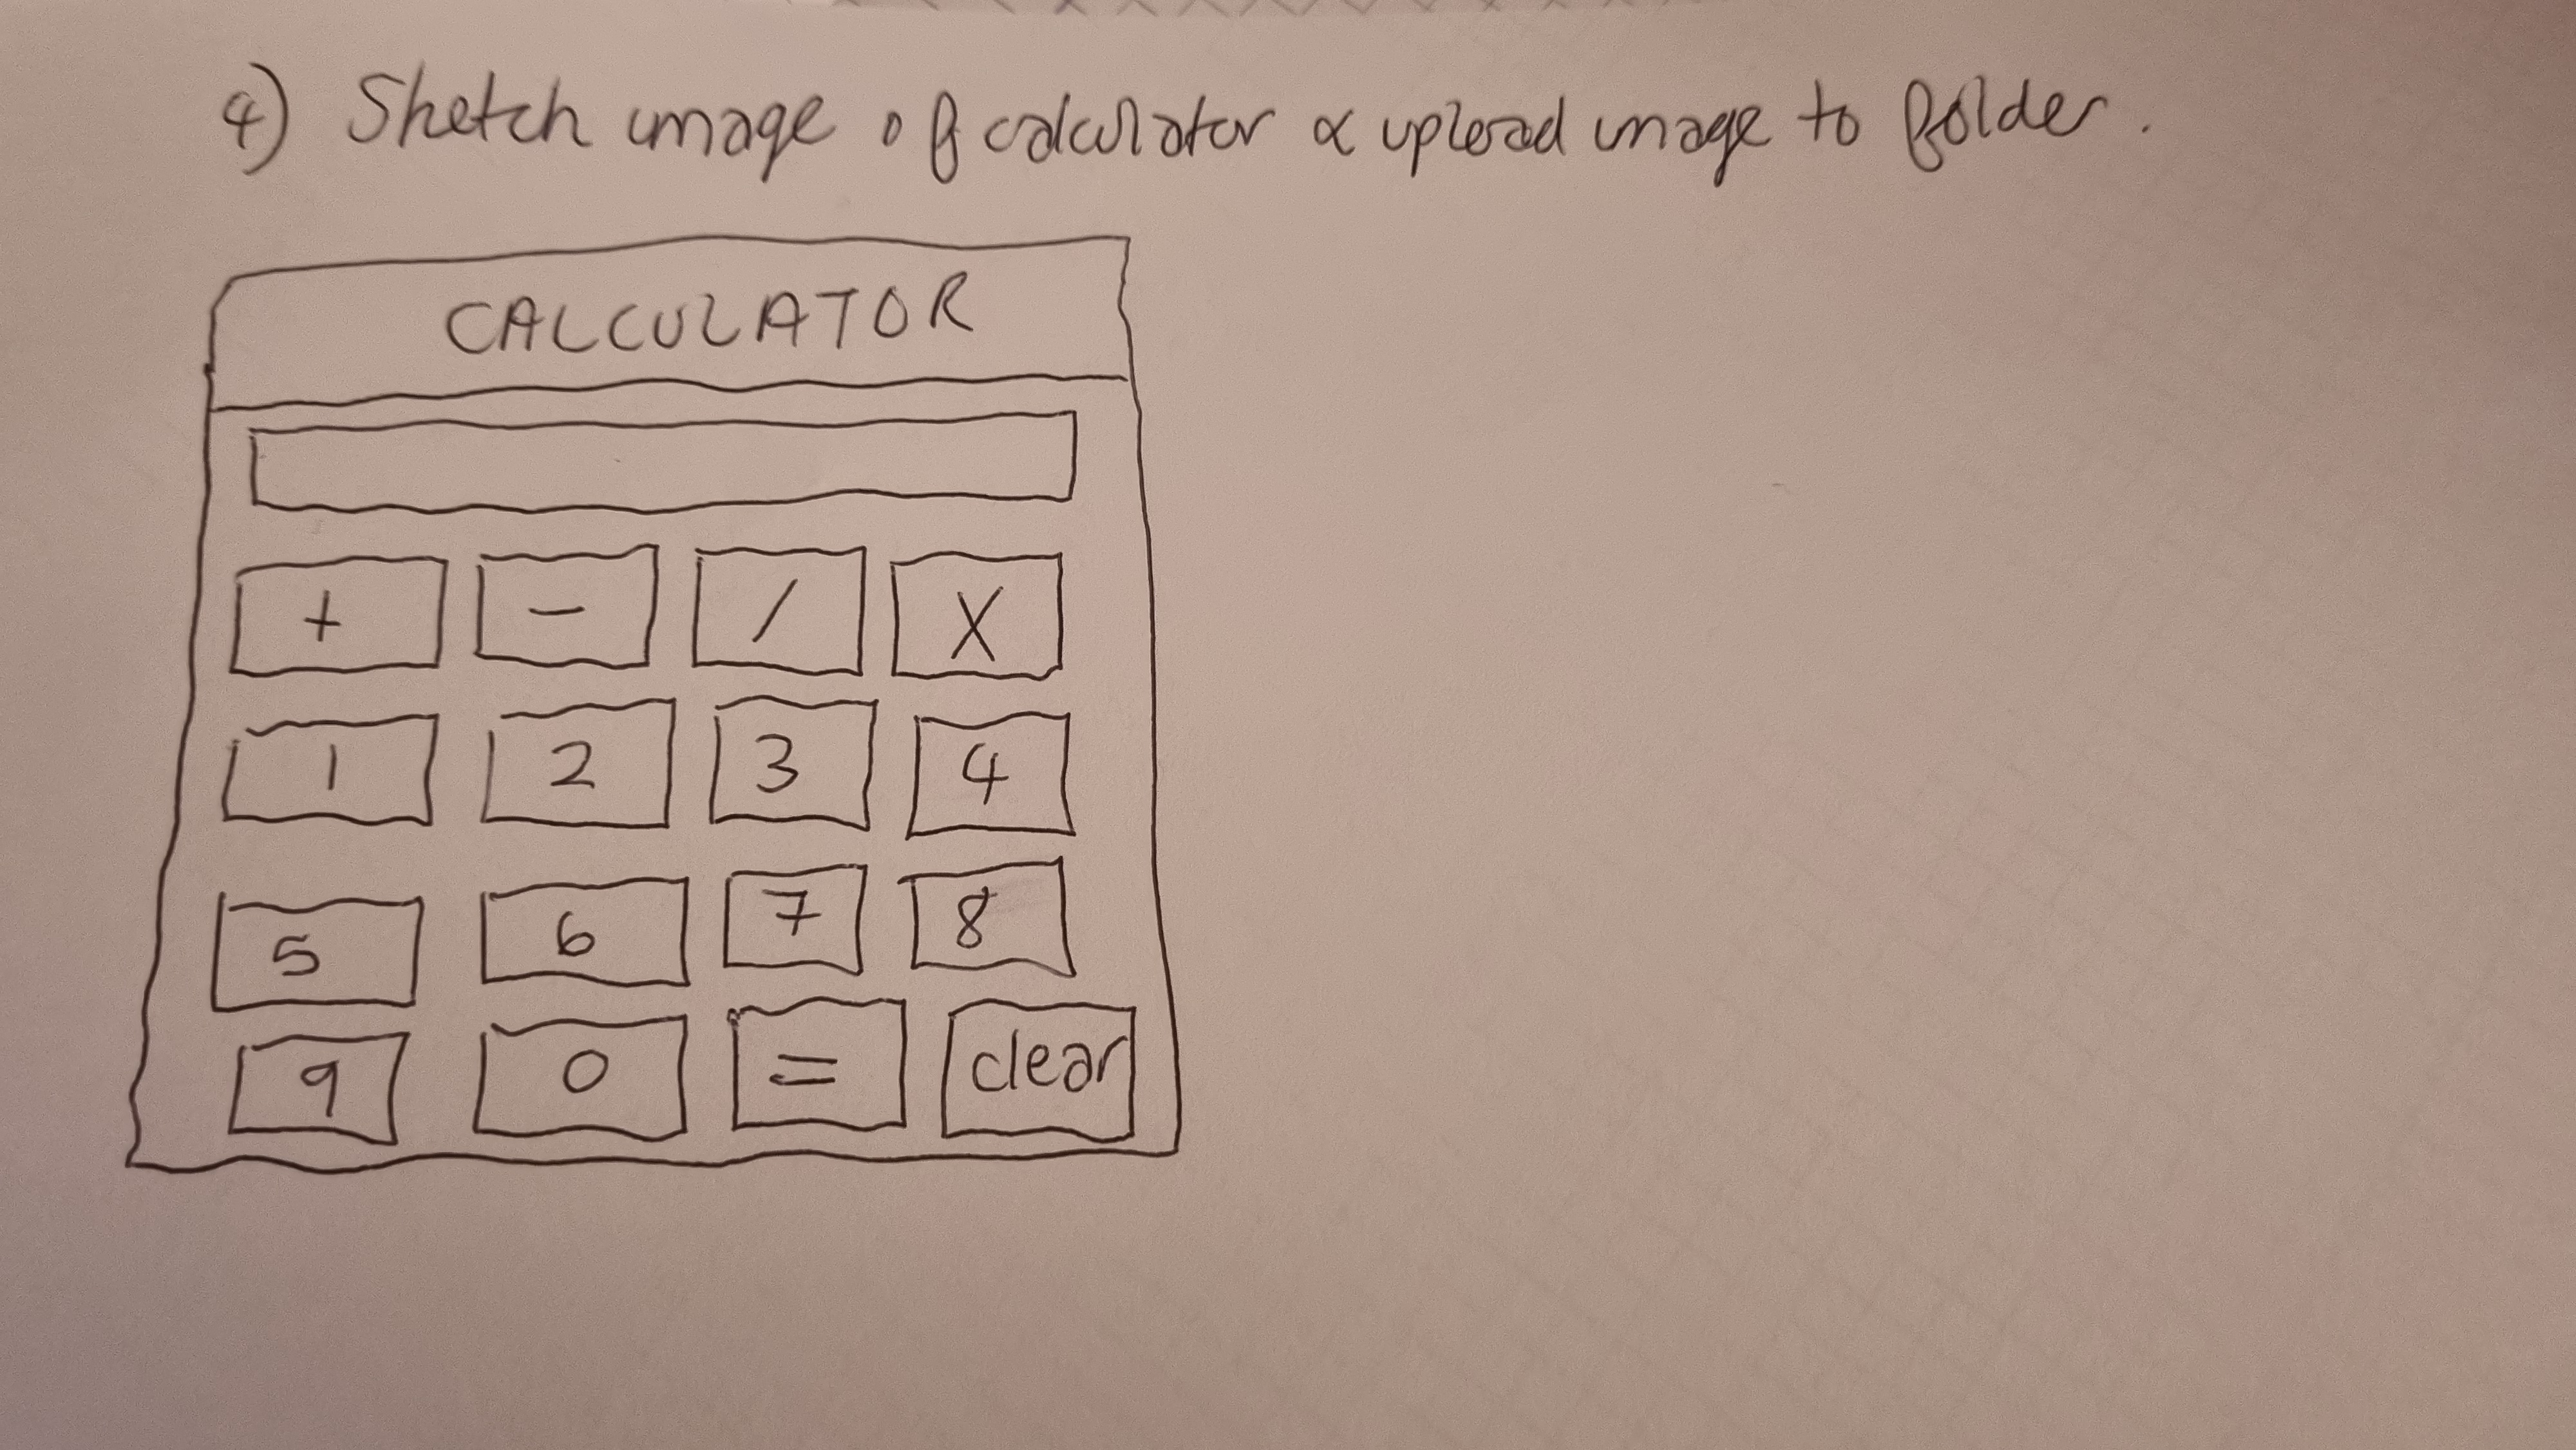 4) Sketch image of calculator & upload image to folder.
CALCULATOR
+ - / X
1 2 3 4
5 6 7 8
9 0 = clear